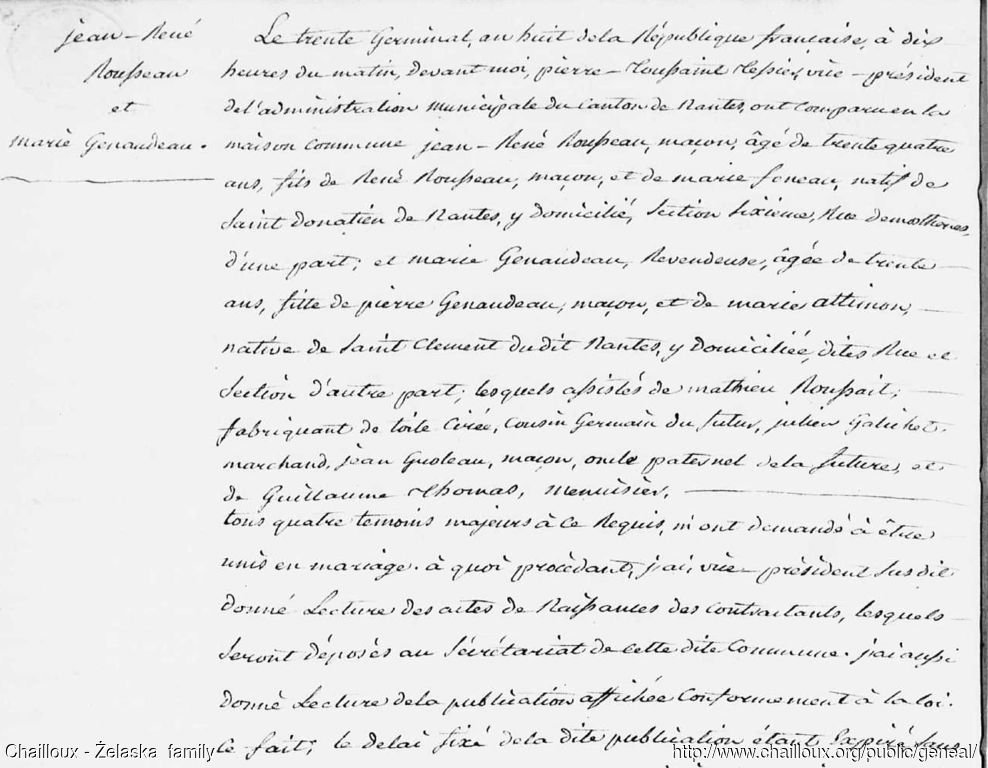 jean-René
Rousseau
et
marie Genaudeau.
Le trente Germinal, an huit dela République française, à dix
heures du matin, devant moi, pierre-Toussaint Tessier, vice-président
del'administration municipale du Canton de Nantes, ont comparu en la
maison commune jean-René Rousseau, maçon, âgé de trente quatre
ans, fils de René Rousseau, maçon, et de marie foneau, natif de
Saint Donatien de Nantes, y domicilié, Section sixième, Rue demosthenes,
d'une part; et marie Genaudeau, Revendeuse, âgée de trente
ans, fille de pierre Genaudeau, maçon, et de marie attimon,
native de Saint Clement dudit Nantes, y Domiciliée, dites Rue et
Section d'autre part; lesquels assistés de mathieu Roussait,
fabriquant de toile Cirée, Cousin Germain du futur, julien Galichet,
marchand, jean Gusteau, maçon, oncle paternel dela future, et
de Guillaume Thomas, menuisier,
tous quatre temoins majeurs à ce Requis, m'ont demandé à être
unis en mariage. à quoi procédant, j'ai, vice-président susdit
donné Lecture des actes de Naissances des contractants, lesquels
seront déposés au Sécrétariat de cette dite Commune. j'ai aussi
donné Lecture dela publication affichée Conformement à la loi.
Ce fait; le delai fixé dela dite publication étant Expiré sans
Chailloux - Żelaska family
http://www.chailloux.org/public/geneal/